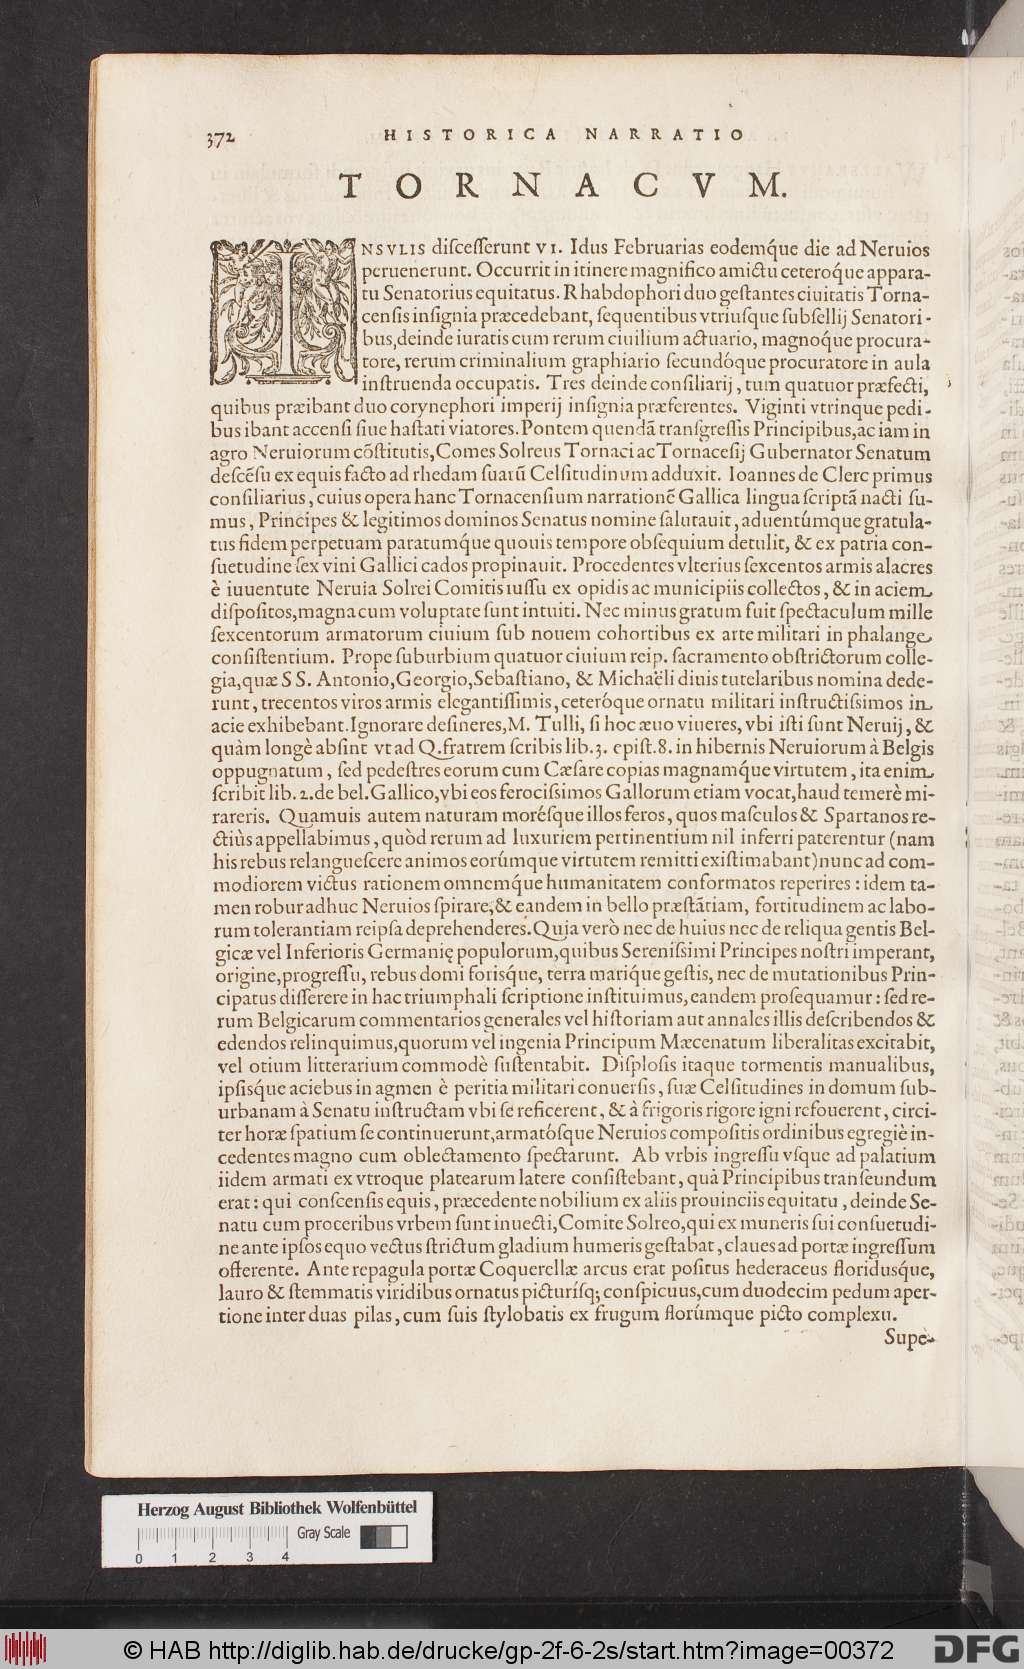 372 HISTORICA NARRATIO
TORNACVM.
INSVLIS diſceſſerunt VI. Idus Februarias eodemq́ue die ad Neruios
peruenerunt. Occurrit in itinere magnifico amictu ceteroq́ue appara-
tu Senatorius equitatus. Rhabdophori duo geſtantes ciuitatis Torna-
cenſis inſignia præcedebant, ſequentibus vtriuſque ſubſellij Senatori-
bus, deinde iuratis cum rerum ciuilium actuario, magnoq́ue procura-
tore, rerum criminalium graphiario ſecundóque procuratore in aula
inſtruenda occupatis. Tres deinde conſiliarij, tum quatuor præfecti,
quibus præibant duo corynephori imperij inſignia præferentes. Viginti vtrinque pedi-
bus ibant accenſi ſiue haſtati viatores. Pontem quendā tranſgreſſis Principibus, ac iam in
agro Neruiorum cōſtitutis, Comes Solreus Tornaci ac Tornaceſij Gubernator Senatum
deſcēſu ex equis facto ad rhedam ſuarū Celſitudinum adduxit. Ioannes de Clerc primus
conſiliarius, cuius opera hanc Tornacenſium narrationē Gallica lingua ſcriptā nacti ſu-
mus, Principes & legitimos dominos Senatus nomine ſalutauit, aduentúmque gratula-
tus fidem perpetuam paratumq́ue quouis tempore obſequium detulit, & ex patria con-
ſuetudine ſex vini Gallici cados propinauit. Procedentes vlterius ſexcentos armis alacres
è iuuentute Neruia Solrei Comitis iuſſu ex opidis ac municipiis collectos, & in aciem
diſpoſitos, magna cum voluptate ſunt intuiti. Nec minus gratum fuit ſpectaculum mille
ſexcentorum armatorum ciuium ſub nouem cohortibus ex arte militari in phalange
conſiſtentium. Prope ſuburbium quatuor ciuium reip. ſacramento obſtrictorum colle-
gia, quæ SS. Antonio, Georgio, Sebaſtiano, & Michaëli diuis tutelaribus nomina dede-
runt, trecentos viros armis elegantiſſimis, ceteróque ornatu militari inſtructiſsimos in
acie exhibebant. Ignorare deſineres, M. Tulli, ſi hoc æuo viueres, vbi iſti ſunt Neruij, &
quàm longè abſint vt ad Q. fratrem ſcribis lib. 3. epiſt. 8. in hibernis Neruiorum à Belgis
oppugnatum, ſed pedeſtres eorum cum Cæſare copias magnamq́ue virtutem, ita enim
ſcribit lib. 2. de bel. Gallico, vbi eos ferociſsimos Gallorum etiam vocat, haud temerè mi-
rareris. Quamuis autem naturam moréſque illos feros, quos maſculos & Spartanos re-
ctiùs appellabimus, quòd rerum ad luxuriem pertinentium nil inferri paterentur (nam
his rebus relangueſcere animos eorúmque virtutem remitti exiſtimabant) nunc ad com-
modiorem victus rationem omnemq́ue humanitatem conformatos reperires: idem ta-
men robur adhuc Neruios ſpirare, & eandem in bello præſtātiam, fortitudinem ac labo-
rum tolerantiam reipſa deprehenderes. Quia verò nec de huius nec de reliqua gentis Bel-
gicæ vel Inferioris Germanię populorum, quibus Sereniſsimi Principes noſtri imperant,
origine, progreſſu, rebus domi foriſque, terra marique geſtis, nec de mutationibus Prin-
cipatus diſſerere in hac triumphali ſcriptione inſtituimus, eandem proſequamur: ſed re-
rum Belgicarum commentarios generales vel hiſtoriam aut annales illis deſcribendos &
edendos relinquimus, quorum vel ingenia Principum Mæcenatum liberalitas excitabit,
vel otium litterarium commodè ſuſtentabit. Diſploſis itaque tormentis manualibus,
ipſiſque aciebus in agmen è peritia militari conuerſis, ſuæ Celſitudines in domum ſub-
urbanam à Senatu inſtructam vbi ſe reficerent, & à frigoris rigore igni refouerent, circi-
ter horæ ſpatium ſe continuerunt, armatóſque Neruios compoſitis ordinibus egregiè in-
cedentes magno cum oblectamento ſpectarunt. Ab vrbis ingreſſu vſque ad palatium
iidem armati ex vtroque platearum latere conſiſtebant, quà Principibus tranſeundum
erat: qui conſcenſis equis, præcedente nobilium ex aliis prouinciis equitatu, deinde Se-
natu cum proceribus vrbem ſunt inuecti, Comite Solreo, qui ex muneris ſui conſuetudi-
ne ante ipſos equo vectus ſtrictum gladium humeris geſtabat, claues ad portæ ingreſſum
offerente. Ante repagula portæ Coquerellæ arcus erat poſitus hederaceus floriduſq́ue,
lauro & ſtemmatis viridibus ornatus picturíſq; conſpicuus, cum duodecim pedum aper-
tione inter duas pilas, cum ſuis ſtylobatis ex frugum florúmque picto complexu.
Supe-
Herzog August Bibliothek Wolfenbüttel
Gray Scale
0 1 2 3 4
© HAB http://diglib.hab.de/drucke/gp-2f-6-2s/start.htm?image=00372
DFG